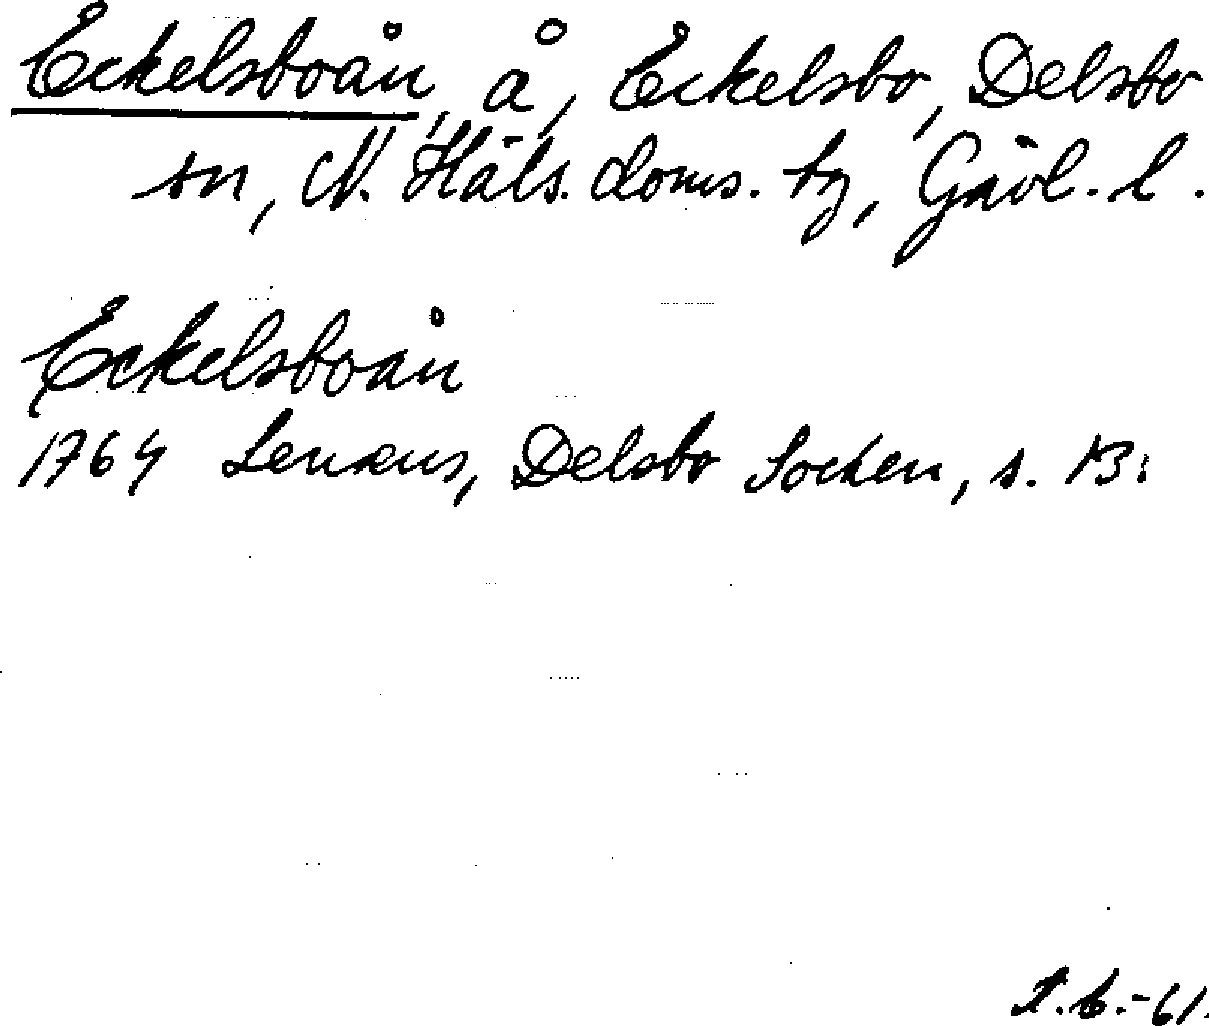 Eckelsboån, å, Eckelsbo, Delsbo
sn, N. Häls. doms. tg, Gävl. l.
Eckelsboån
1764 Lenæus, Delsbo Socken, s. 13:
I.B.-61.